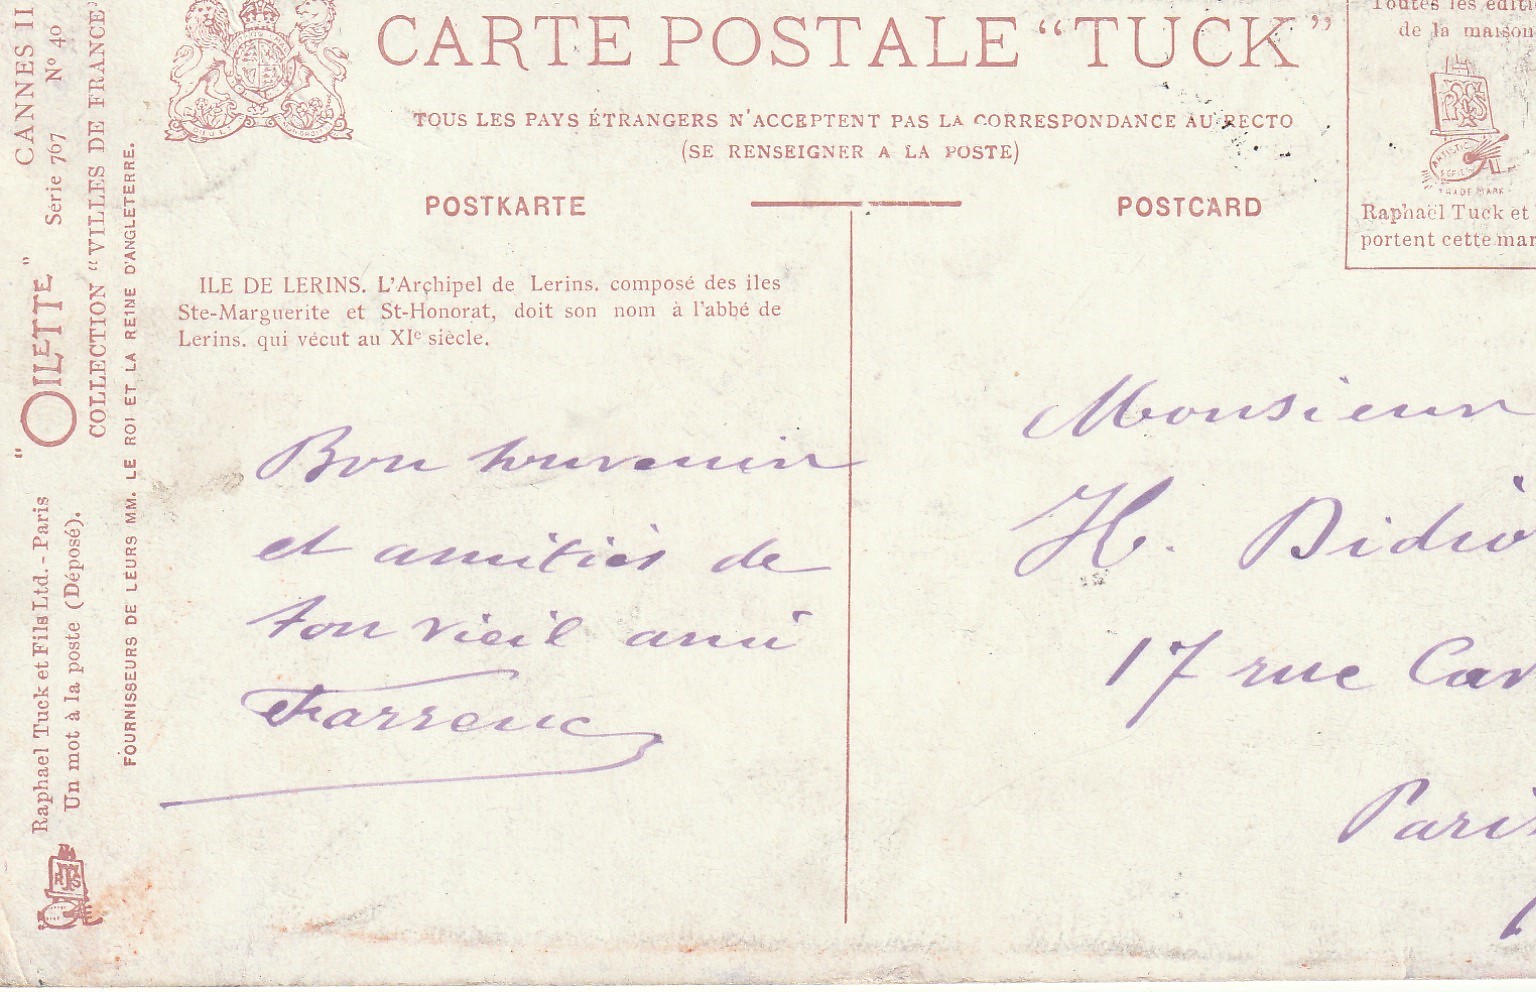 CARTE POSTALE "TUCK"
TOUS LES PAYS ÉTRANGERS N'ACCEPTENT PAS LA CORRESPONDANCE AU RECTO
(SE RENSEIGNER A LA POSTE)
POSTKARTE
POSTCARD
Toutes les éditi
de la maison
ARTISTIC
TRADE MARK
Raphaël Tuck et
portent cette mar
CANNES II
Série 767 N° 40
"OILETTE"
COLLECTION "VILLES DE FRANCE"
Raphael Tuck et Fils Ltd. - Paris
Un mot à la poste (Déposé).
FOURNISSEURS DE LEURS MM. LE ROI ET LA REINE D'ANGLETERRE.
ILE DE LERINS. L'Archipel de Lerins. composé des iles
Ste-Marguerite et St-Honorat, doit son nom à l'abbé de
Lerins. qui vécut au XIe siècle.
Bon souvenir
et amitiés de
ton vieil ami
Farrenc
Monsieur
H. Didio
17 rue Car
Paris